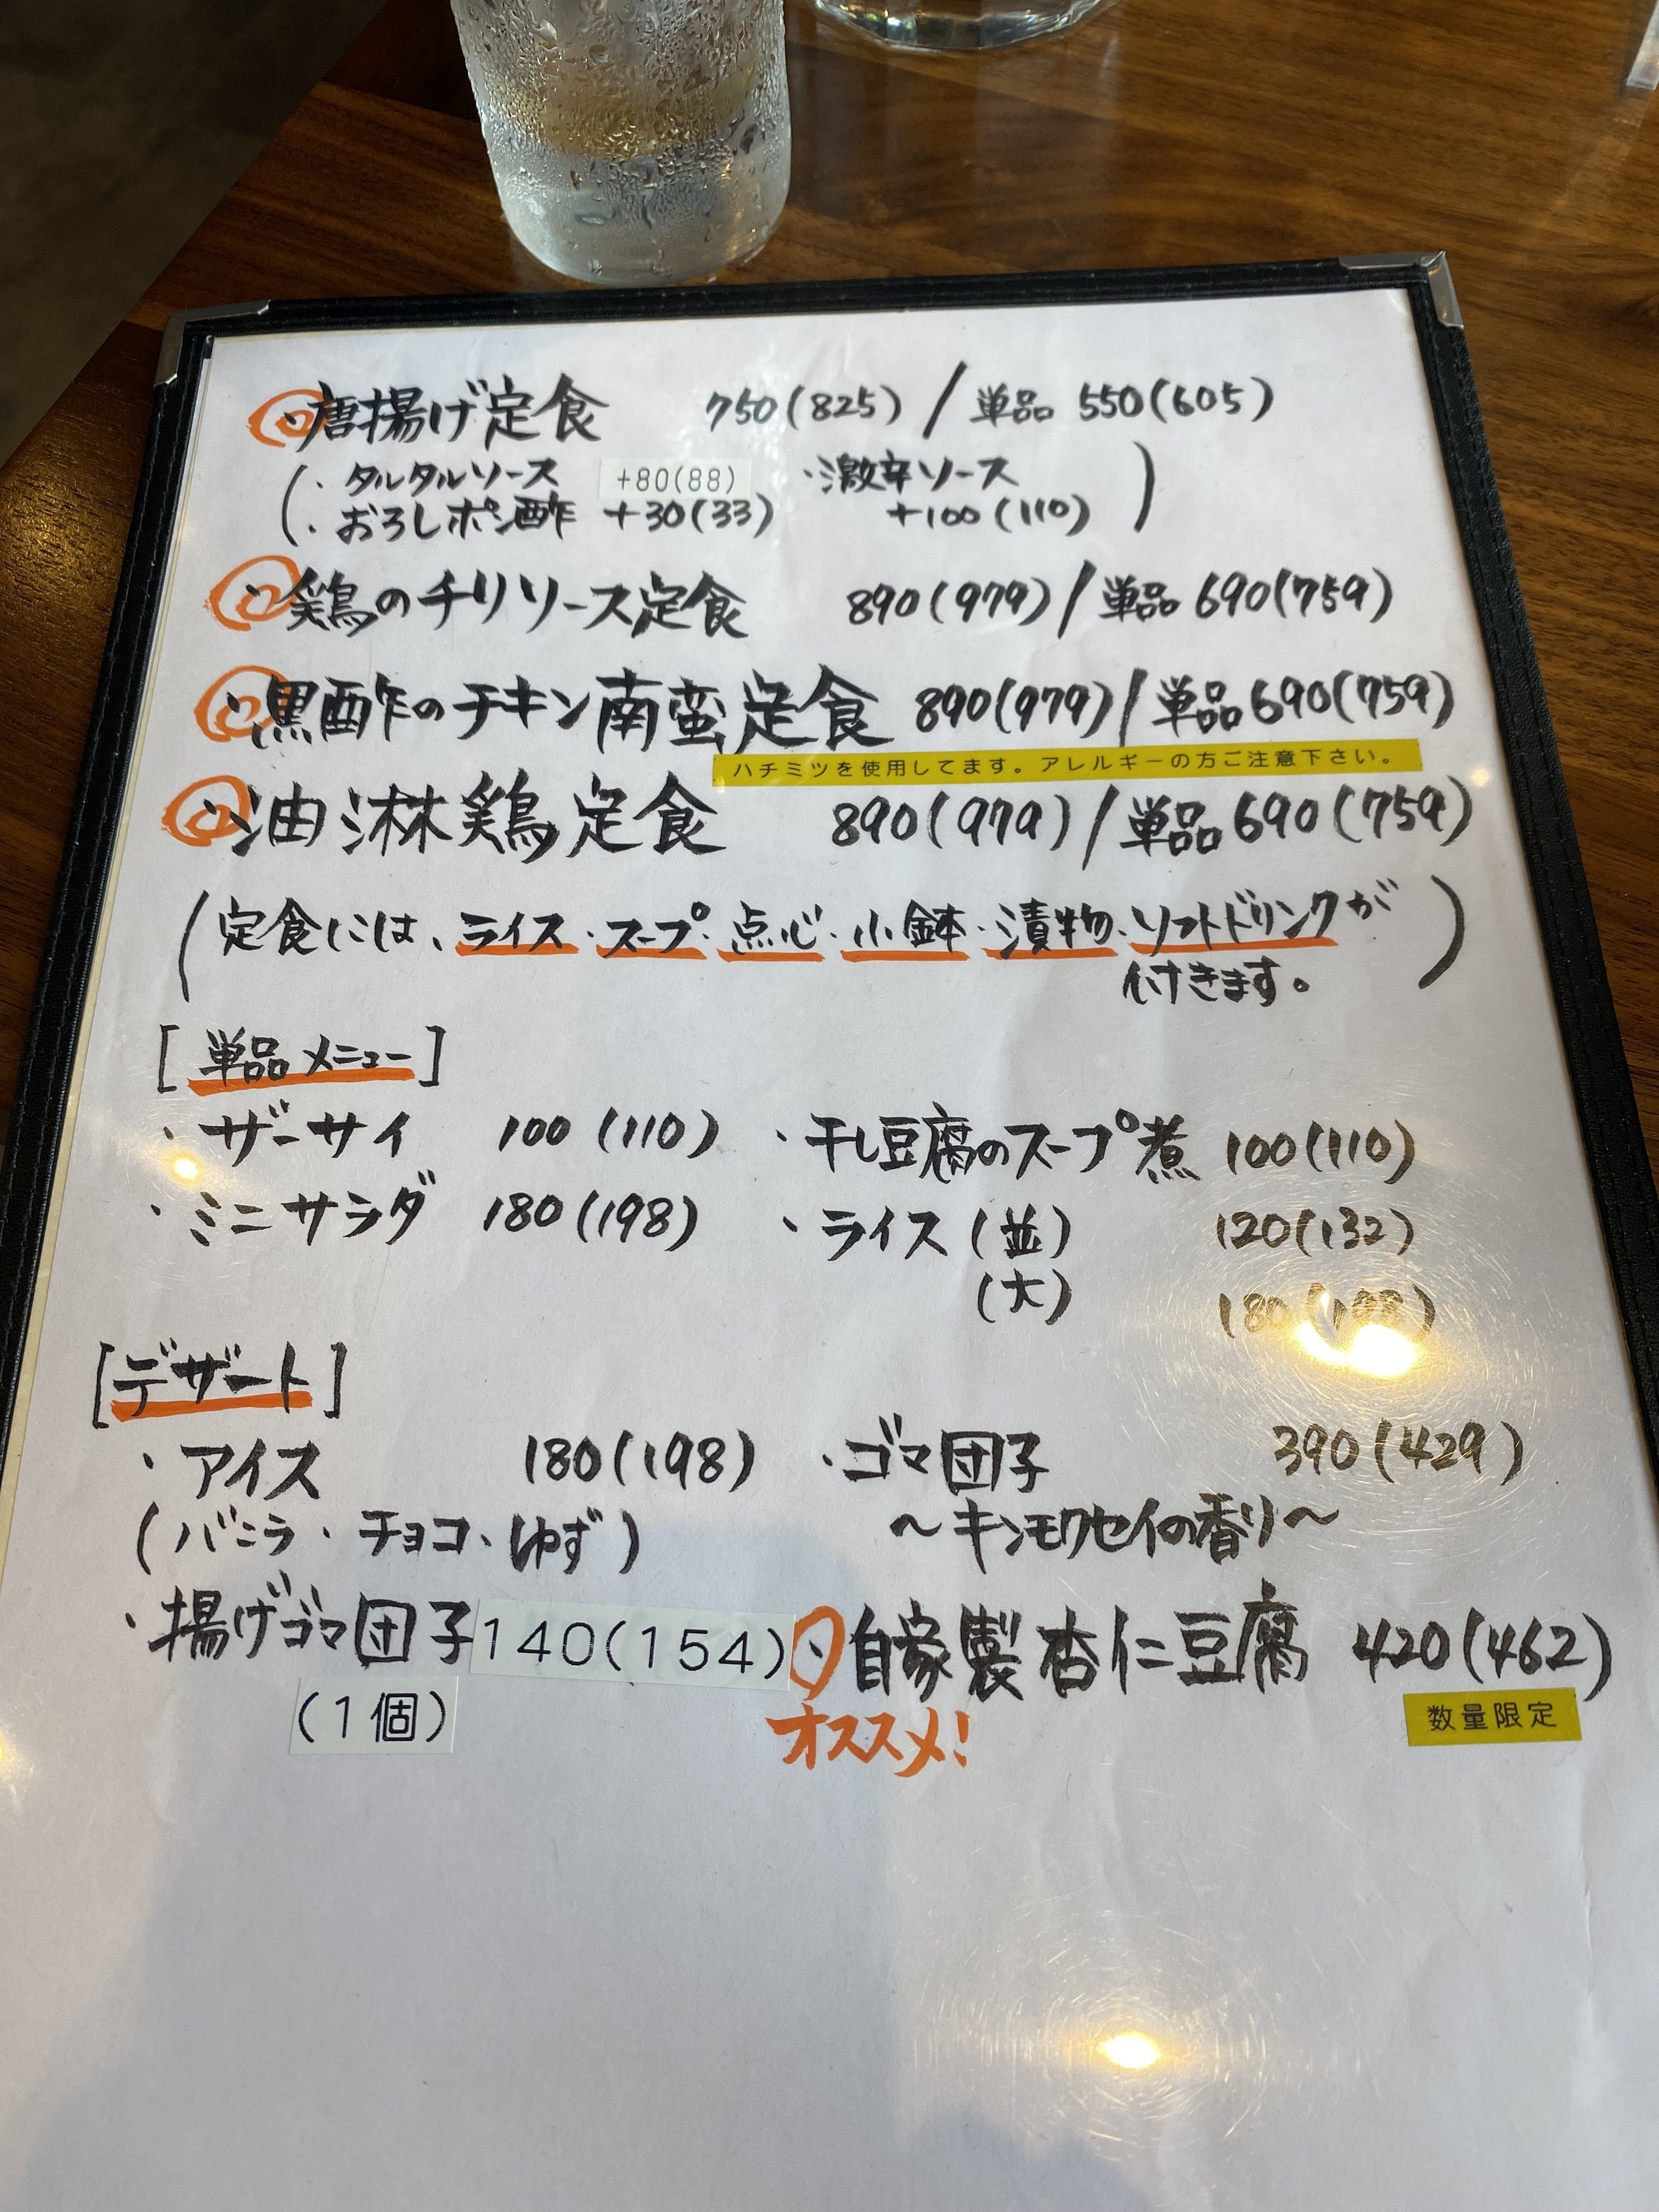 ・唐揚げ定食 750(825) / 単品 550(605)
(・タルタルソース +80(88) ・激辛ソース
・おろしポン酢 +30(33) +100(110))
・鶏のチリソース定食 890(979) / 単品 690(759)
・黒酢のチキン南蛮定食 890(979) / 単品 690(759)
ハチミツを使用してます。アレルギーの方ご注意下さい。
・油淋鶏定食 890(979) / 単品 690(759)
(定食には、ライス・スープ・点心・小鉢・漬物・ソフトドリンクが
付きます。)
[単品メニュー]
・ザーサイ 100(110) ・干し豆腐のスープ煮 100(110)
・ミニサラダ 180(198) ・ライス(並) 120(132)
(大) 180(198)
[デザート]
・アイス 180(198) ・ゴマ団子 390(429)
(バニラ・チョコ・ゆず) 〜キンモクセイの香り〜
・揚げゴマ団子 140(154) ・自家製杏仁豆腐 420(462)
(1個) オススメ! 数量限定